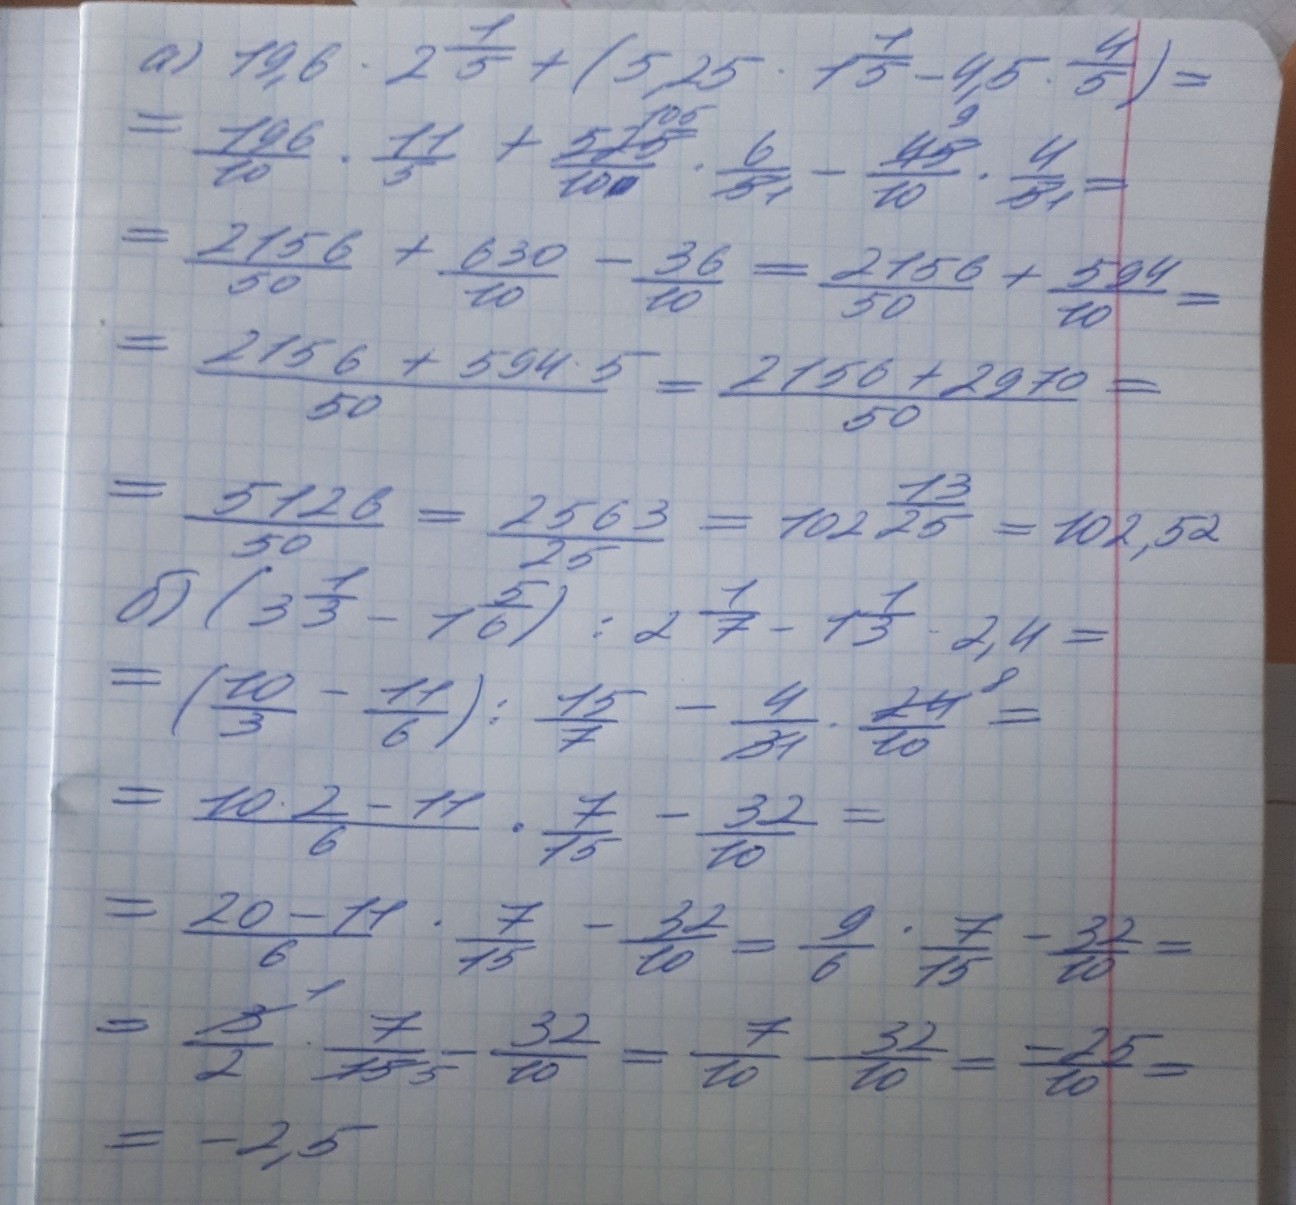 а) 19,6 · 2 1/5 + (5,25 · 1 1/5 - 4,5 · 4/5) =
= 196/10 · 11/5 + 525/10 105 · 6/5 1 - 45/10 9 · 4/5 1 =
= 2156/50 + 630/10 - 36/10 = 2156/50 + 594/10 =
= (2156 + 594 · 5)/50 = (2156 + 2970)/50 =
= 5126/50 = 2563/25 = 102 13/25 = 102,52
б) (3 1/3 - 1 5/6) : 2 1/7 - 1 1/3 · 2,4 =
= (10/3 - 11/6) : 15/7 - 4/3 1 · 24/10 8 =
= (10 · 2 - 11)/6 · 7/15 - 32/10 =
= (20 - 11)/6 · 7/15 - 32/10 = 9/6 · 7/15 - 32/10 =
= 3/2 1 · 7/15 5 - 32/10 = 7/10 - 32/10 = -25/10 =
= -2,5